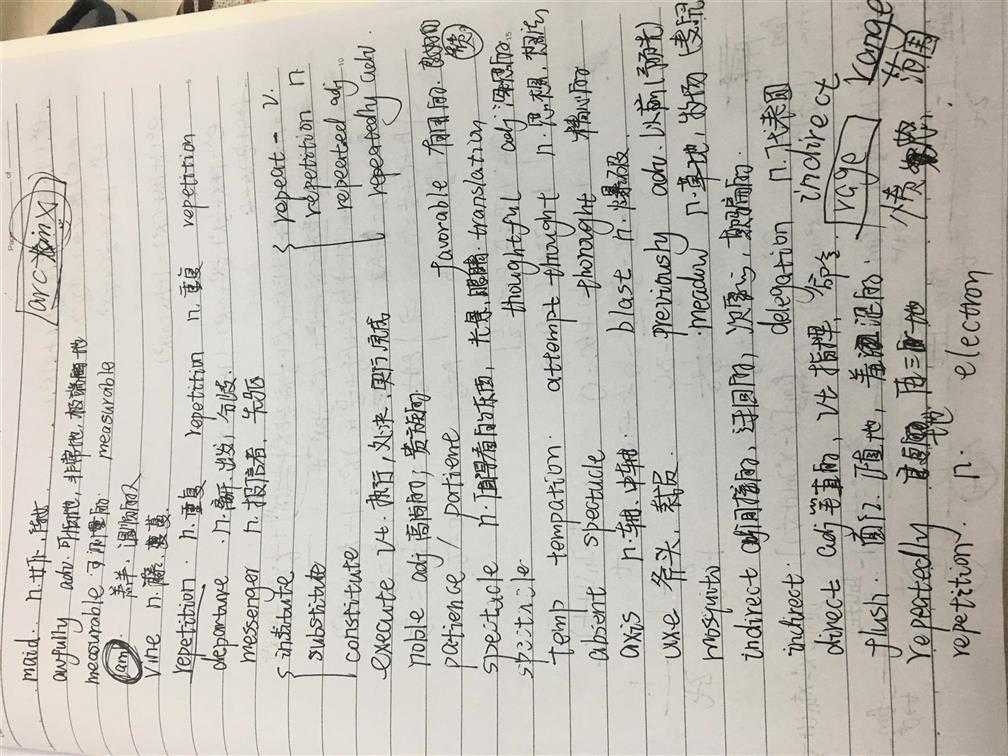 arc
maid n.女仆,
awfully adv. 可怕地,非常地,极端地
measurable 可测量的 measurable
lam 羔羊,温顺的人
vine n.藤蔓
repetition n.重复 repetition n.重复 repetition
departure n.离开,出发,分歧
messenger n.报信者,先驱
institute
substitute
constitute
repeat v.
repetition n
repeated adj
repeatedly adv.
execute vt.执行,处决,实行,完成
noble adj 高尚的;贵族的 favorable 有利的,
patience / patient
spectcle n. 光景,眼镜 translation
thoughtful adj 深思的
temp tempation attempt thought n.思想,想法
absent spectucle thorought 精心的
axis n.轴,中轴 blast n.爆破
uxe 斧头,裁员 previously adv.以前,预先
mosquito meadow n.草地,牧场
indirect adj间接的,迂回的,欺骗的
indirect. delegation n.代表团
direct adj笔直的,vt指挥,命令 indirect
flush 面红 rage range
repeatedly 再三地 愤怒 范围
repetition n. electron